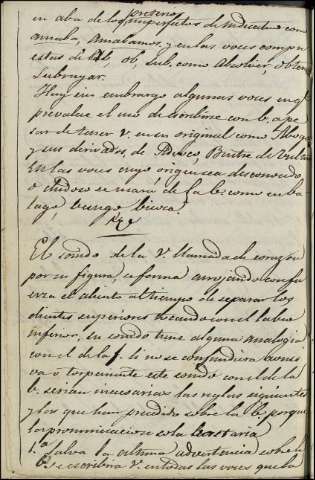 preseno
en aba de los imperfectos de indicatibo como
amaba, Amabamos, y en las voces compu
estas de Ab, ob, sub, como Absolver, obtener
Subrrayar.
Hay sin embargo algunas voces en q
prevalece el uso de escribirse con b, a pe
sar de tener v, en su original como Aboga
y sus derivados, de Advoco, Buitre de Vultur
En las voces cuyo origen sea desconocido
o dudoso se usará de la b: como en ba
lago, bunge, bierza.
V,,
El sonido de la v. llamada de corazon
por su figura, se forma arrojando con fu
erza el aliento al tiempo de separar los
dientes superiores tocando con el labio
inferior, su sonido tiene alguna analogia
con el de la f. si no se confundiera
va o torpemente este sonido con el de la
b, serian innecesarias las reglas siguientes
y las que han precedido sobre la b, porque
la pronunciacion sola bastaria
1.ª Salva la ultima advertencia sobre la
b, se escribira v. en todas las voces que la